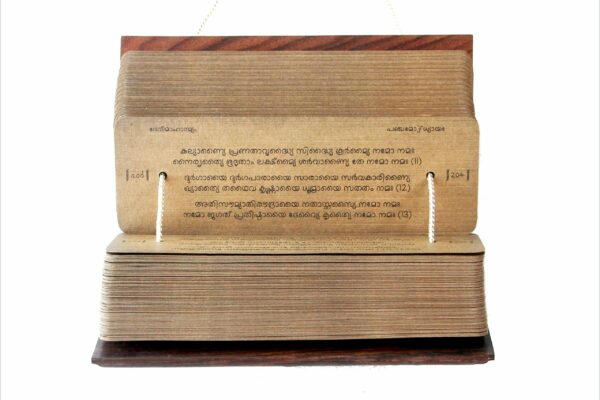 ദേവീമാഹാത്മ്യം പഞ്ചമോഽധ്യായഃ
കല്യാണ്യൈ പ്രണതാവൃദ്ധ്യൈ സിദ്ധ്യൈ കൂർമ്യൈ നമോ നമഃ
നൈരൃത്യൈ ഭൂഭൃതാം ലക്ഷ്മ്യൈ ശർവാണ്യൈ തേ നമോ നമഃ (11)
ദുർഗായൈ ദുർഗപാരായൈ സാരായൈ സർവകാരിണ്യൈ
ഖ്യാത്യൈ തഥൈവ കൃഷ്ണായൈ ധൂമ്രായൈ സതതം നമഃ (12)
അതിസൗമ്യാതിരൗദ്രായൈ നതാസ്തസ്യൈ നമോ നമഃ
നമോ ജഗത് പ്രതിഷ്ഠായൈ ദേവ്യൈ കൃത്യൈ നമോ നമഃ (13)